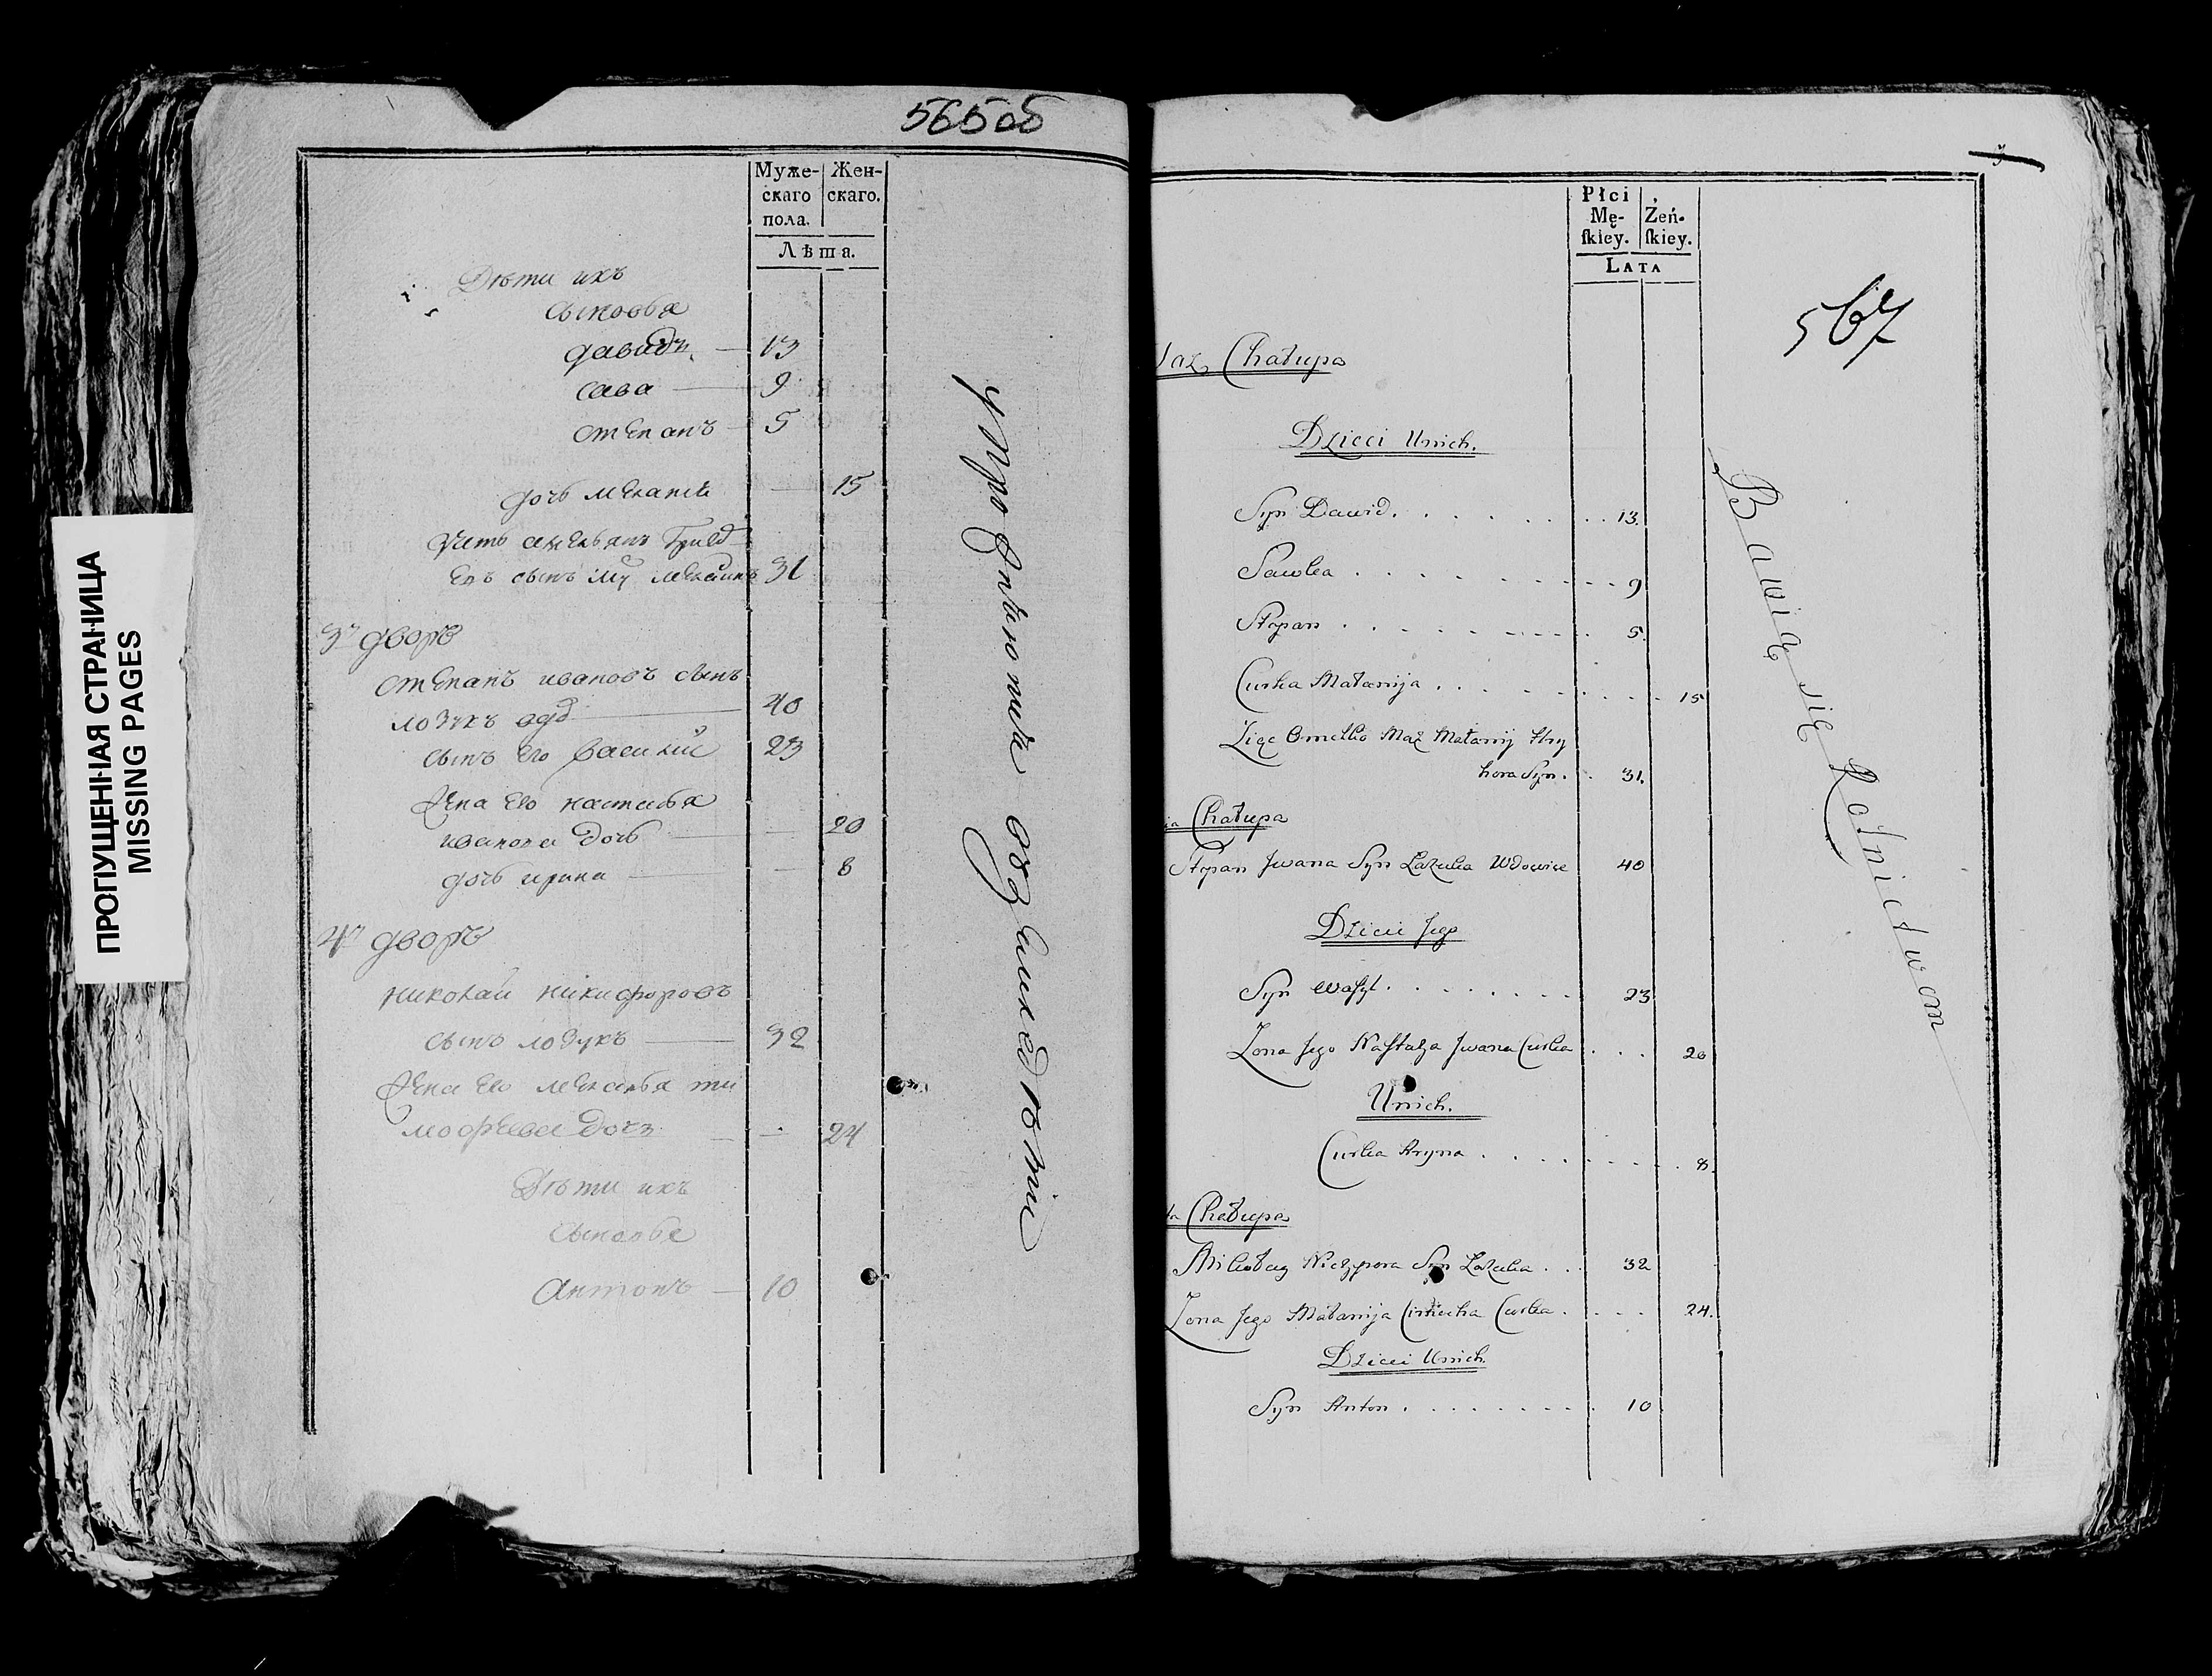 ПРОПУЩЕННАЯ СТРАНИЦА
MISSING PAGES
565об
Муже-
скаго
пола.
Жен-
скаго.
Лѣта.
Дѣти ихъ
сыновья
давидъ 13
сава 9
степанъ 5
дочь мелания 15
31
3й дворъ
степанъ ивановъ сынъ
лозукъ вдо 40
сынъ его василий 23
жена его настасья
иванова дочь 20
дочь ирина 8
4й дворъ
николай никифоровъ
сынъ лозукъ 32
жена его меланья ти
мофеева дочь 24
Дѣти ихъ
сыновья
антонъ 10
упражняются въ земледелии
3
Płci
Mę-
ſkiey.
Żeń-
ſkiey.
LATA
567
Chałupa
Dzieci Unich.
Syn Dawid 13.
Sawka 9
Stepan 5.
Curka Małanija 15
Zięc Omelko Mąż Małanij Hry
hora Syn 31.
Chałupa
Stepan Jwana Syn Łazuka Wdowiec 40
Dzieci Jego
Syn Waſyl 23
Zona Jego Naſtazya Jwana Curka 20
Unich.
Curka Aryna 8.
Chałupa
Mikołay Niczypora Syn Łazuka 32
Zona Jego Małanija Cimucha Curka 24.
Dzieci Unich
Syn Anton 10
Bawią się Rolnictwem